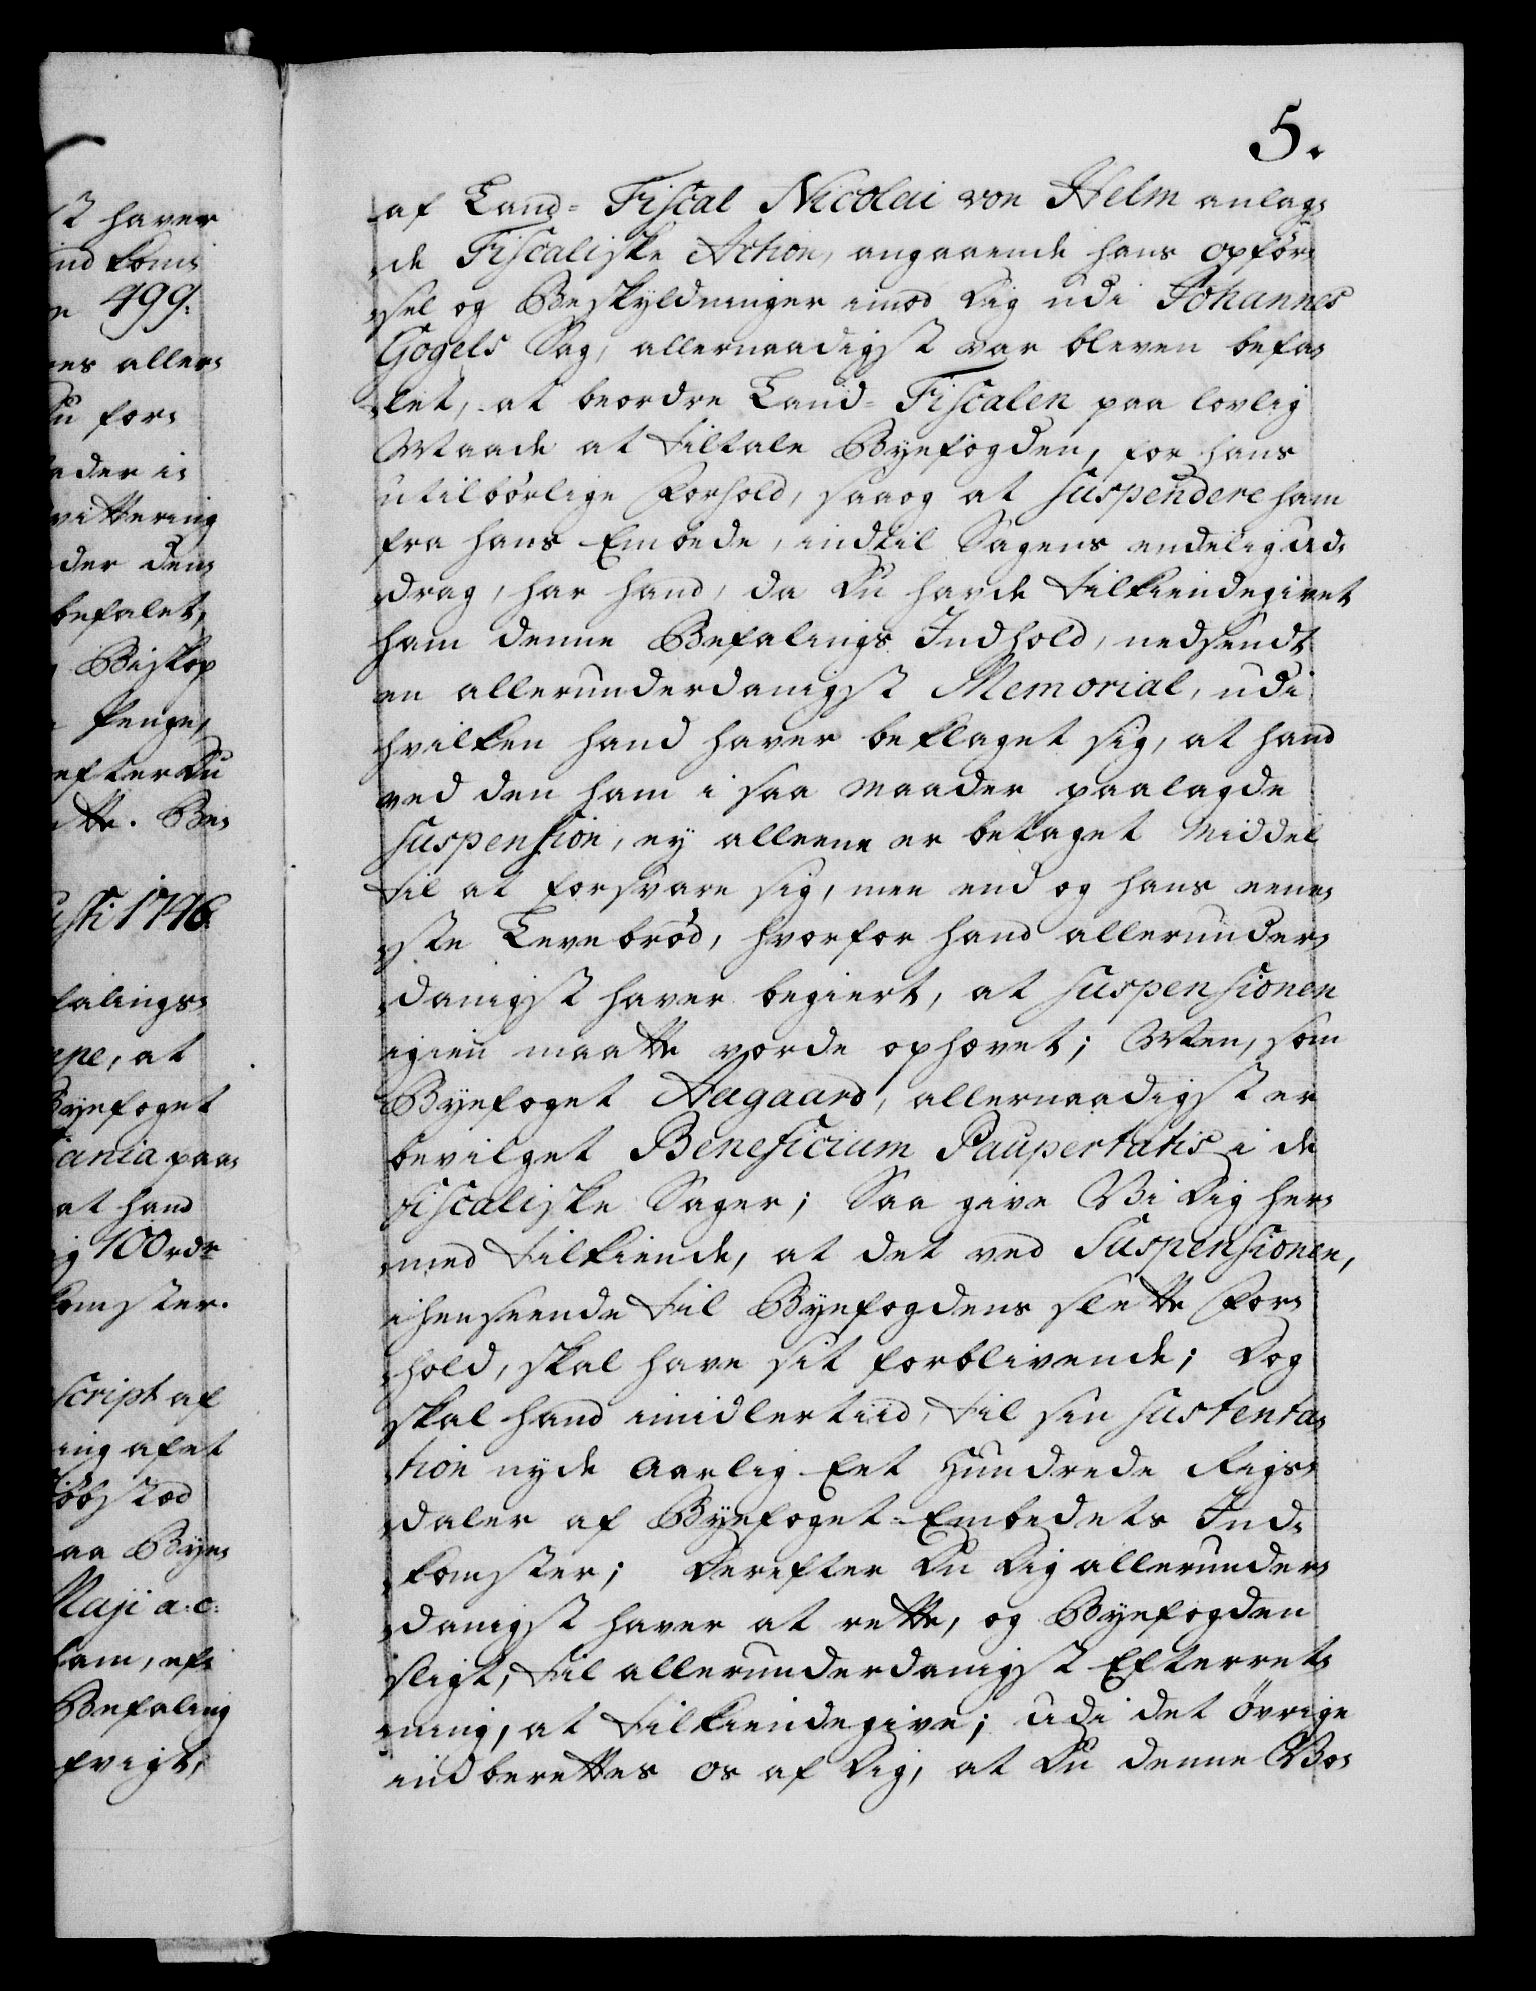 5.
af Land= Fiscal Nicolai von Helm anlag=
de Fiscaliske Action, angaaende hans opför=
sel og Beskyldninger imod Dig udi Johannes
Gogels Sag, allernaadigst var bleven befa=
let, at beordre Land= Fiscalen paa lovlig
Maade at tiltale Byefogden, for hans
utilbörlige Forhold, saa og at suspendere ham
fra hans Embede, indtil Sagens endelig Ud=
drag, har hand, da Du havde tilkiendegivet
ham denne Befalings Indhold, nedsendt
en allerunderdanigst Memorial, udi
hvilken hand haver beklaget sig, at hand
ved den ham i saa Maader paalagde
suspension, ey alleene er betaget Middel
til at forsvare sig, men end og hans eene=
ste Levebrød, hvorfor hand allerunder=
danigst haver begiert, at suspensionen
igien maatte vorde ophævet; Men, som
Byefoget Aagaard, allernaadigst er
bevilget Beneficium Paupertatis i de
fiscaliske Sager; Saa give Vi Dig her=
med tilkiende, at det ved Suspensionen,
i henseende til Byefogdens slette For=
hold, skal have sit forblivende; Dog
skal hand imidlertiid, til sin sustenta=
tion nyde Aarlig Eet Hundrede Rigs=
daler af Byefoget=Embedets Ind=
komster; Derefter Du Dig allerunder=
danigst haver at rette, og Byefogden
sligt, til allerunderdanigst Efterret=
ning, at tilkiendegive; Udi det övrige
indberettes os af Dig, at Du denne Vo=
st haver
ind kom=
499.
es aller=
Du for=
ader i=
vittering
der den=
befalet,
Biskop
Penge,
efter Du
ette. Be=
usti 1746.
falings=
ppe, at
Byefoget
iania paa=
at hand
ig 100 rdr
komster.
script af
ing af et
iöbstæd
aa Bye=
Maji a: c:
ham, ef=
Befaling
svigt,